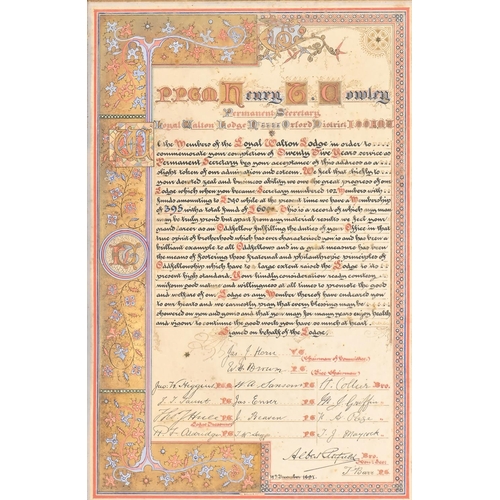 P.P.G.M. Henry T. Cowley
Permanent Secretary
Loyal Walton Lodge Oxford District I.O.O.F.M.U.
We the Members of the Loyal Walton Lodge in order to
commemorate your completion of Twenty Five Years service as
Permanent Secretary beg your acceptance of this address as a
slight token of our admiration and esteem We feel that chiefly to
your devoted zeal and business ability we owe the great progress of our
Lodge which when you became Secretary numbered 102 Members with
funds amounting to £540 while at the present time we have a Membership
of 395 with total fund of This is a record of which any man
may be justly proud but apart from any material results we feel your
grand career as an Oddfellow fulfilling the duties of your Office in that
true spirit of brotherhood which has ever characterised you is and has been a
brilliant example to all Oddfellows and in a great measure has been
the means of fostering those fraternal and philanthropic principles of
Oddfellowship which have to a large extent raised the Lodge to its
present high standard. Your kindly consideration ready courtesy
uniform good nature and willingness at all times to promote the good
and welfare of our Lodge or any Member thereof have endeared you
to our hearts and we earnestly pray that every blessing may be
showered on you and yours and that you may for many years enjoy health
and vigour to continue the good works you have so much at heart
Signed on behalf of the Lodge.
Jas J. Horn P.G.
Chairman of Committee
W. E. Brown P.G.
Vice Chairman
Jno. W. Higgins P.G. W. A. Sansom P.G. Collier Bro.
Faunt P.G. Jas Enser P.G. J. Griffin P.G.
P.G. J. Beavin P.G. P.G.
Lodge Treasurer
Aldridge P.G. P.G. T. J. Maycock P.G.
Albert Bro.
T. Barr P.G.
December